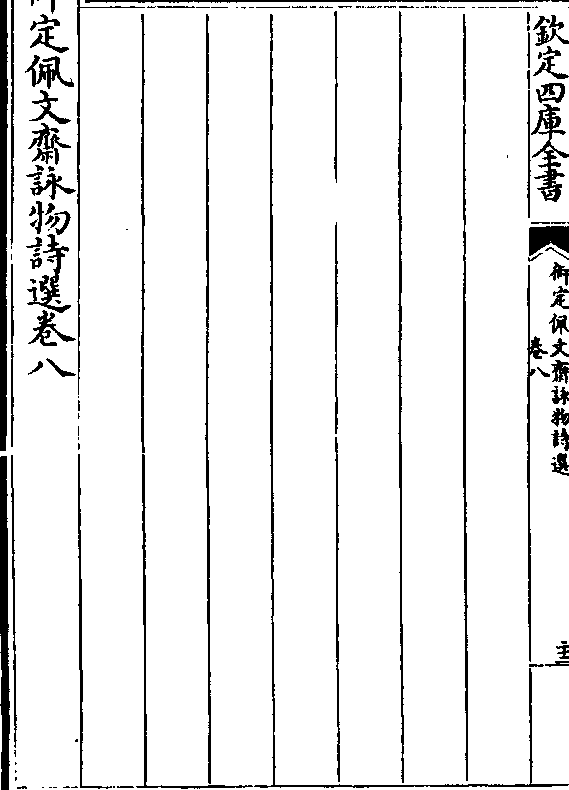 欽定四庫全書
御定佩文齋詠物詩選
卷八
御定佩文齋詠物詩選卷八